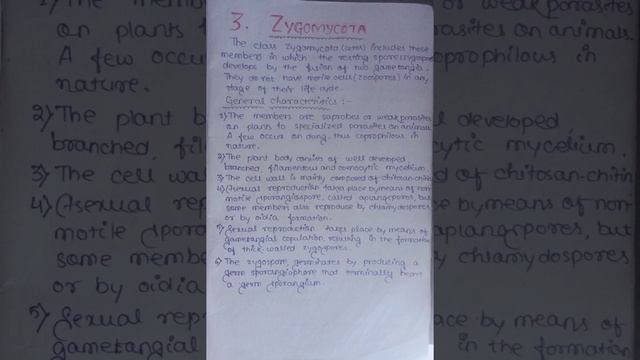 3. ZYGOMYCOTA
The class Zygomycota includes those
members in which the resting spore
develops by the fusion of two gametangia.
They do not have motile cells (zoospores) in any
stage of their life cycle.
General characteristics :-
1) The members are saprobes or weak parasites
on plants to specialized parasites on animals.
A few occurs on dung, thus coprophilous in
nature.
2) The plant body consists of well developed
branched, filamentous and coenocytic mycelium.
3) The cell wall is mainly composed of chitosan-chitin
4) Asexual reproduction takes place by means of non-
motile sporangiospore, called aplanospores, but
some members also reproduce by chlamydospores
or by oidia formation.
5) Sexual reproduction takes place by means of
gametangial copulation resulting in the formation
of thick walled zygospores.
6) The zygospore germinates by producing a
germ sporangiophore that terminally bears
a germ sporangium.